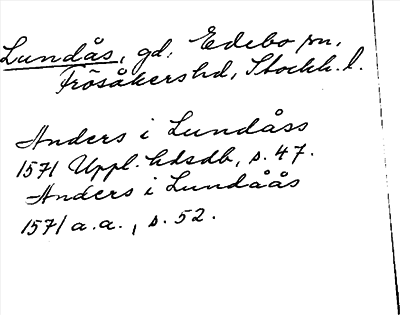 Lundås, gd. Edebo sn.
Frösåkers hd, Stockh. l.
Anders i Lundåss
1571 Uppl. hdsdb, s. 47.
Anders i Lundåås
1571 a.a., s. 52.